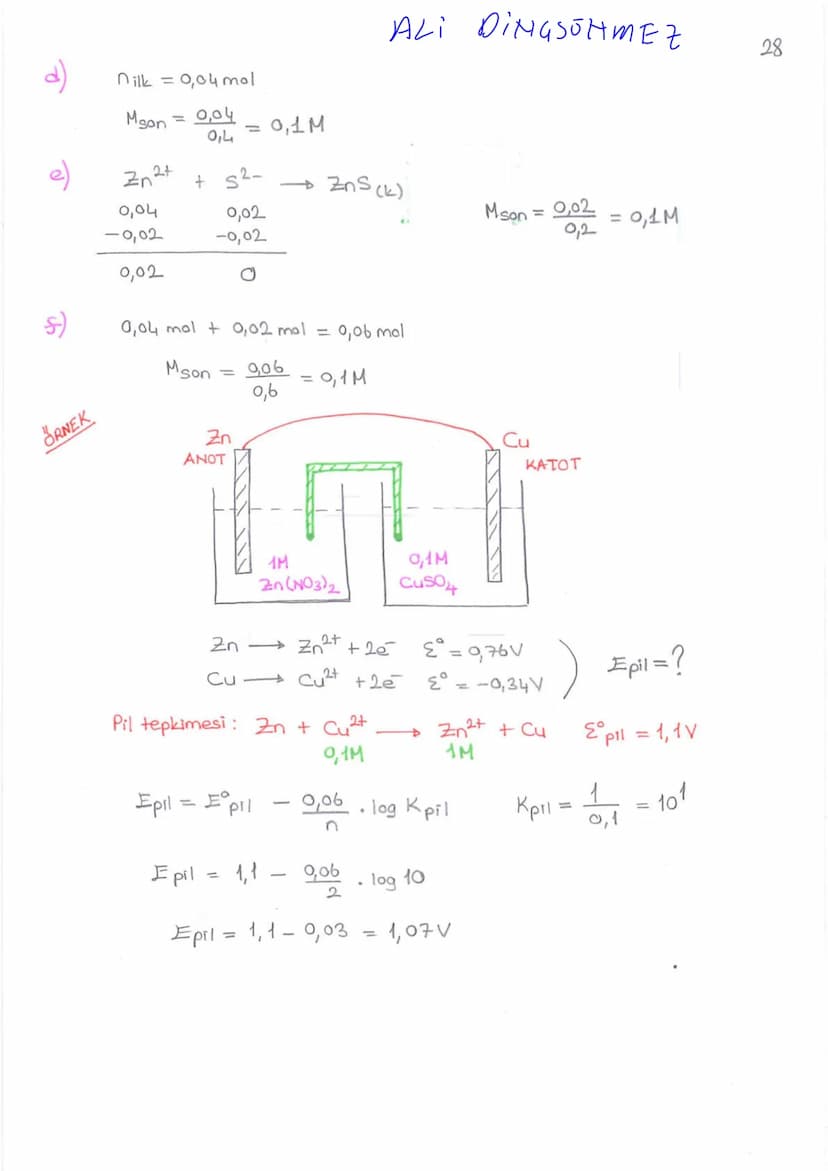 ALİ DİNÇSÖNMEZ
28
d) nilk = 0,04 mol
Mson = 0,04 / 0,4 = 0,1M
e) Zn²⁺ + S²⁻ → ZnS(k)
0,04 0,02
-0,02 -0,02
0,02 0
Mson = 0,02 / 0,2 = 0,1M
f) 0,04 mol + 0,02 mol = 0,06 mol
Mson = 0,06 / 0,6 = 0,1M
ÖRNEK
Zn Cu
ANOT KATOT
1M 0,1M
Zn(NO3)2 CuSO4
Zn → Zn²⁺ + 2e⁻ Ɛ° = 0,76V
Cu → Cu²⁺ + 2e⁻ Ɛ° = -0,34V
Epil = ?
Pil tepkimesi : Zn + Cu²⁺ → Zn²⁺ + Cu Ɛ°pil = 1,1V
0,1M 1M
Epil = E°pil - 0,06 / n . log Kpil Kpil = 1 / 0,1 = 10¹
Epil = 1,1 - 0,06 / 2 . log 10
Epil = 1,1 - 0,03 = 1,07V